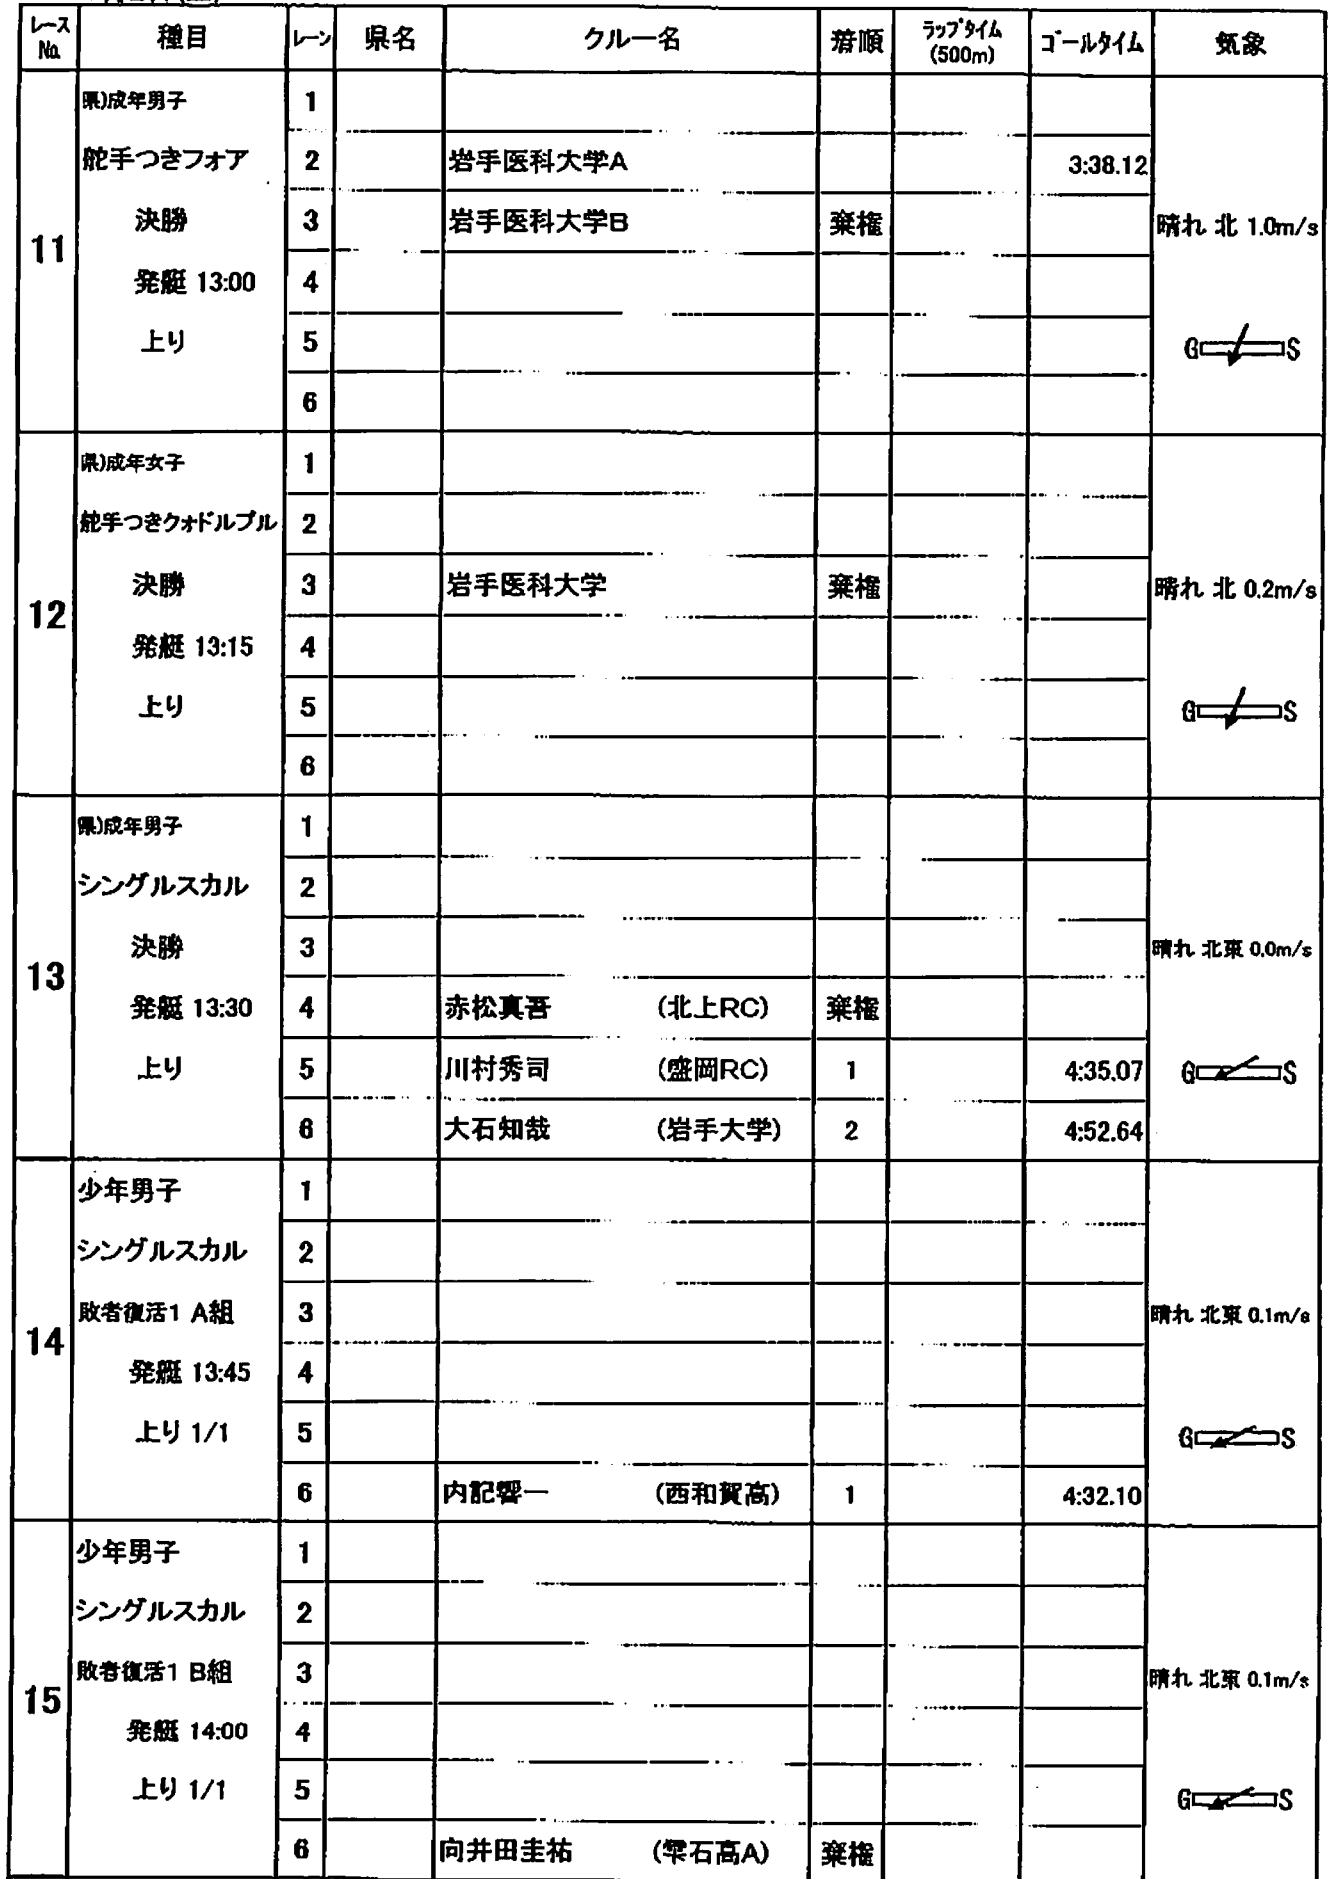 レースNo. 種目 レーン 県名 クルー名 着順 ラップタイム(500m) ゴールタイム 気象
11
県)成年男子 1
舵手つきフォア 2 岩手医科大学A 3:38.12
決勝 3 岩手医科大学B 棄権 晴れ 北 1.0m/s
発艇 13:00 4
上り 5 G S
6
12
県)成年女子 1
舵手つきクォドルプル 2
決勝 3 岩手医科大学 棄権 晴れ 北 0.2m/s
発艇 13:15 4
上り 5 G S
6
13
県)成年男子 1
シングルスカル 2
決勝 3 晴れ 北東 0.0m/s
発艇 13:30 4 赤松真吾 (北上RC) 棄権
上り 5 川村秀司 (盛岡RC) 1 4:35.07 G S
6 大石知哉 (岩手大学) 2 4:52.64
14
少年男子 1
シングルスカル 2
敗者復活1 A組 3 晴れ 北東 0.1m/s
発艇 13:45 4
上り 1/1 5 G S
6 内記響一 (西和賀高) 1 4:32.10
15
少年男子 1
シングルスカル 2
敗者復活1 B組 3 晴れ 北東 0.1m/s
発艇 14:00 4
上り 1/1 5 G S
6 向井田圭祐 (雫石高A) 棄権